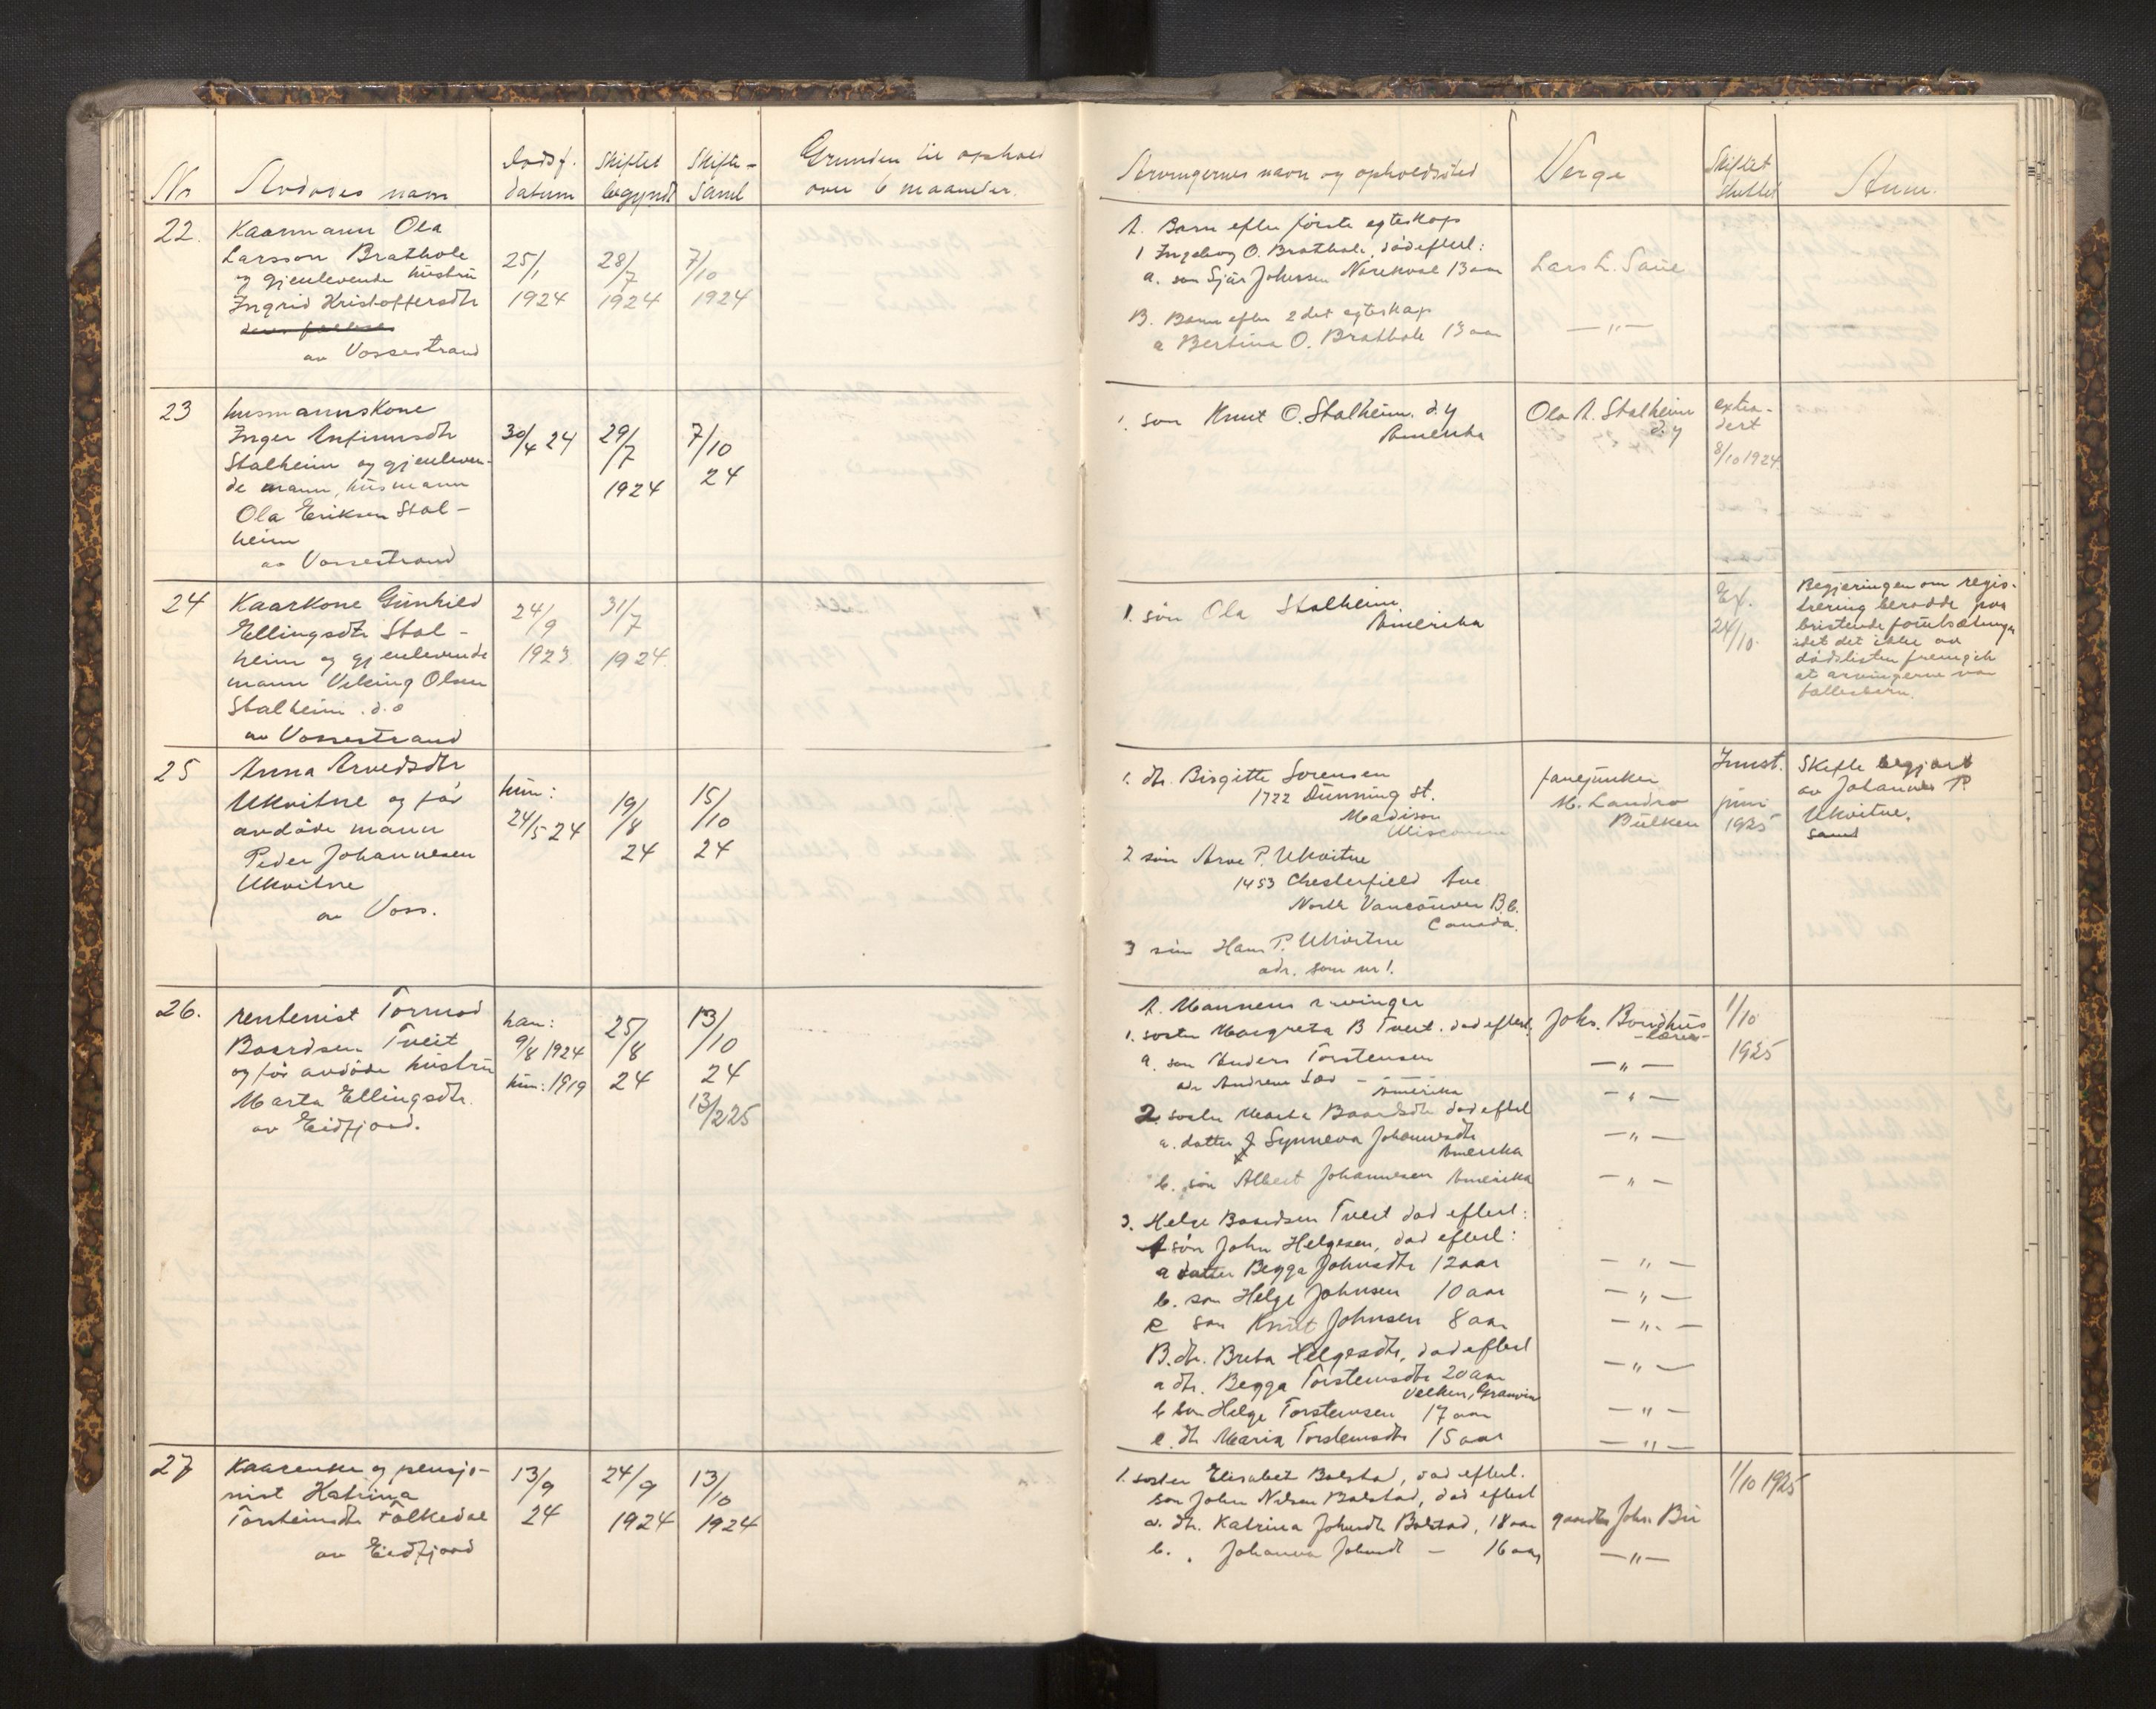 Nr
Avdødes navn
dødsf. datum
Skiftet begyndt
Skifte-saml
Grunden til ophold
over 6 maaneder.
Arvingernes navn og opholdssted
Verge
Skiftet sluttet
Anm.
22.
Kaarmann Ola
Larsson Brathole
og gjenlevende hustru
Ingrid Kristoffersdtr
av Vossestrand
25/1
1924
28/7
1924
7/10
1924
A. Barn efter første egteskap
1 Ingeborg O. Brathole, død efterl:
a. søn Sjur Johnsen 13 aar
B. Barn efter 2det egteskap
a Bertina O. Brathole 13 aar
Lars L. Saue
—"—
23
husmannskone
Inger Anfinnsdtr
Stalheim og gjenleven-
de mann, husmann
Ola Eriksen Stal-
heim
av Vossestrand
30/4 24
29/7
1924
7/10
24
1. søn Knut O. Stalheim d.y
Amerika
Ola A. Stalheim
d.y
extra-
dert
8/10 1924.
24
Kaarkone Gunhild
Ellingsdtr Stal-
heim og gjenlevende
mann Viking Olsen
Stalheim d.o
av Vossestrand
24/9
1923
31/7
1924
1. søn Ola Stalheim
Amerika
Ex.
24/10.
Begjæringen om regis-
trering berodde paa
bristende forutsætninger
idet det ikke av
dødslisten fremgik
at arvingerne var
fællesbarn.
25
Anna Arvedsdtr
Ukvitne og før
avdøde mann
Peder Johannesen
Ukvitne
av Voss.
hun:
24/5 24
19/8
24
15/10
24
1. dtr. Birgitte Sorensen
1722 Dunning St.
Madison
Wisconsin
2 søn Arve P. Ukvitne
1453 Chesterfield Ave
North Vancouver B.C.
Canada.
3 søn Hans P. Ukvitne
adr. som nr 1.
fanejunker
M. Landro
Bulken
Innst.
juni
1925
Skifte begjært
av Johannes P.
Ukvitne.
26.
rentenist Tormod
Baardsen Tveit
og før avdøde hustru
Marta Ellingsdtr.
av Eidfjord.
han:
9/8 1924
hun: 1919
25/8
24
13/10
24
13/2 25
A. Mannens arvinger
1. søster Margreta B Tveit. død efterl.
a. søn Anders Torstensen
Amerika
2. søster Marta Baardsdtr død efterl
a. datter Synneva Johannesdtr
Amerika
b. søn Albert Johannesen Amerika
3. Helge Baardsen Tveit død efterl:
A søn John Helgesen, død efterl:
a datter Begga Johnsdtr 12 aar
b. søn Helge Johnsen 10 aar
c søn Knut Johnsen 8 aar
B. dtr. Brita Helgesdtr, død efterl
a dtr. Begga Torsteinsdtr 20 aar
Granvin
b søn Helge Torsteinsen 17 aar
c. dtr Maria Torsteinsdtr 15 aar
Johs. Bondhus
—"—
—"—
—"—
—"—
—"—
—"—
—"—
—"—
—"—
—"—
1/10
1925
27
Kaarenke og pensjo-
nist Katrina
Torsteinsdtr Folkedal
av Eidfjord
13/9
24
24/9
1924
13/10
1924
1. søster Elisabet Bolstad, død efterl.
søn John Nilsen Bolstad, død efterl
a. dtr. Katrina Johnsdtr Bolstad, 18 aar
b. " Johanna Johnsdt — 16 aar
gaardbr John Bu
—"—
1/10 1925